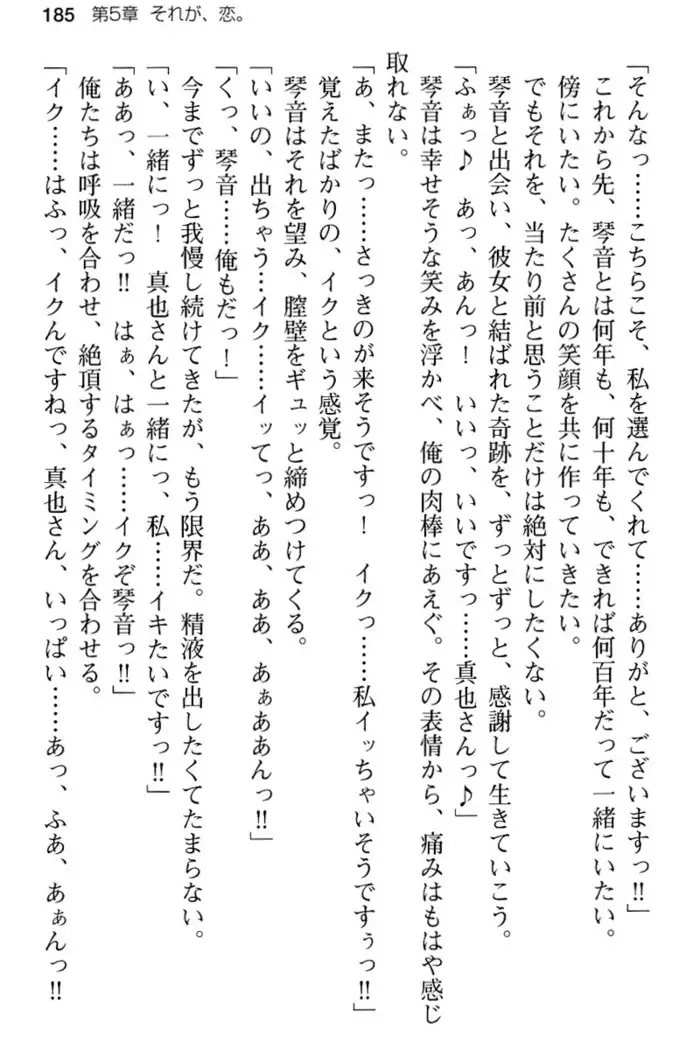 185 第5章 それが、恋。
「そんなっ……こちらこそ、私を選んでくれて……ありがと、ございますっ!!」
これから先、琴音とは何年も、何十年も、できれば何百年だって一緒にいたい。
傍にいたい。たくさんの笑顔を共に作っていきたい。
でもそれを、当たり前と思うことだけは絶対にしたくない。
琴音と出会い、彼女と結ばれた奇跡を、ずっとずっと、感謝して生きていこう。
「ふぁっ♪ あっ、あんっ! いいっ、いいですっ……真也さんっ♪」
琴音は幸せそうな笑みを浮かべ、俺の肉棒にあえぐ。その表情から、痛みはもはや感じ
取れない。
「あ、またっ……さっきのが来そうですっ! イクっ……私イッちゃいそうですぅっ!!」
覚えたばかりの、イクという感覚。
琴音はそれを望み、膣壁をギュッと締めつけてくる。
「いいの、出ちゃう…イク……イッてっ、ああ、ああ、あぁああんっ!!」
「くっ、琴音……俺もだっ!」
今までずっと我慢し続けてきたが、もう限界だ。精液を出したくてたまらない。
「い、一緒にっ! 真也さんと一緒にっ、私……イキたいですっ!!」
「ああっ、一緒だっ!! はぁ、はぁっ……イクぞ琴音っ!!」
俺たちは呼吸を合わせ、絶頂するタイミングを合わせる。
「イク……はふっ、イクんですねっ、真也さん、いっぱい……あっ、ふあ、あぁんっ!!